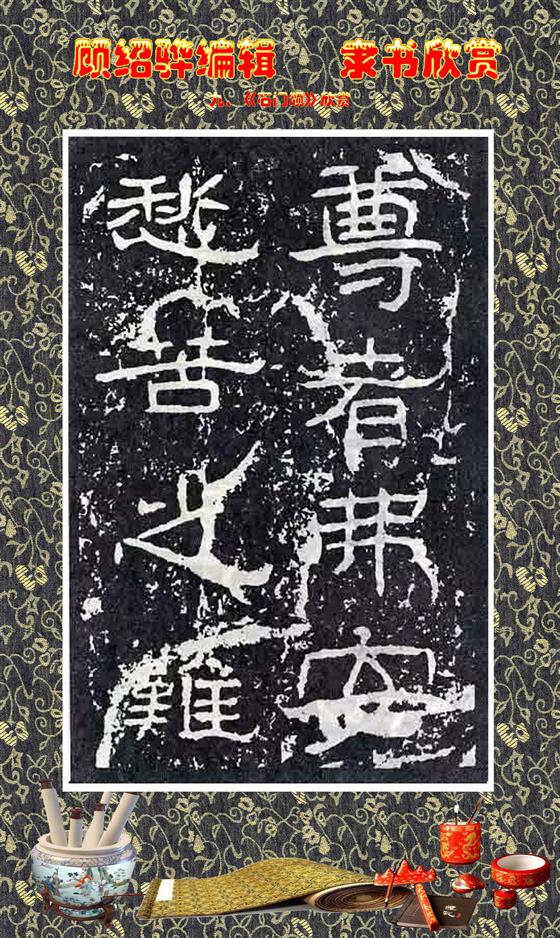 顾绍骅编辑 隶书欣赏
九、《石门颂》欣赏
尊者弗安
愁苦之難